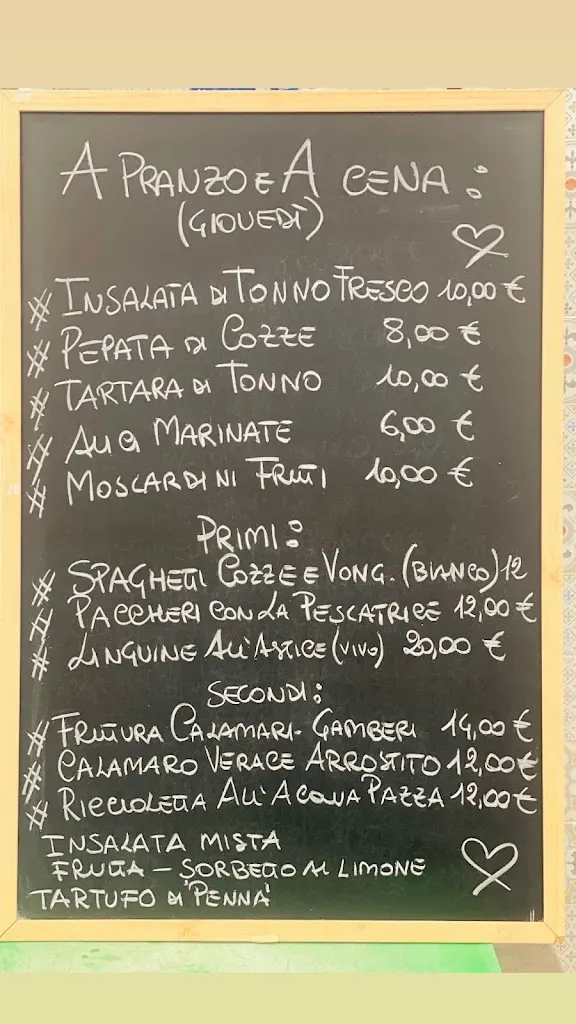 A PRANZO E A CENA:
(GIOVEDÌ)
# INSALATA DI TONNO FRESCO 10,00 €
# PEPATA DI COZZE 8,00 €
# TARTARA DI TONNO 10,00 €
# ALICI MARINATE 6,00 €
# MOSCARDINI FRITTI 10,00 €
PRIMI:
# SPAGHETTI COZZE E VONG. (BIANCO) 12
# PACCHERI CON LA PESCATRICE 12,00 €
# LINGUINE ALL'ASTICE (VIVO) 20,00 €
SECONDI:
# FRITTURA CALAMARI - GAMBERI 14,00 €
# CALAMARO VERACE ARROSTITO 12,00 €
# RICCIOLETTA ALL'ACQUA PAZZA 12,00 €
INSALATA MISTA
FRUTTA - SORBETTO AL LIMONE
TARTUFO DI "PENNA"